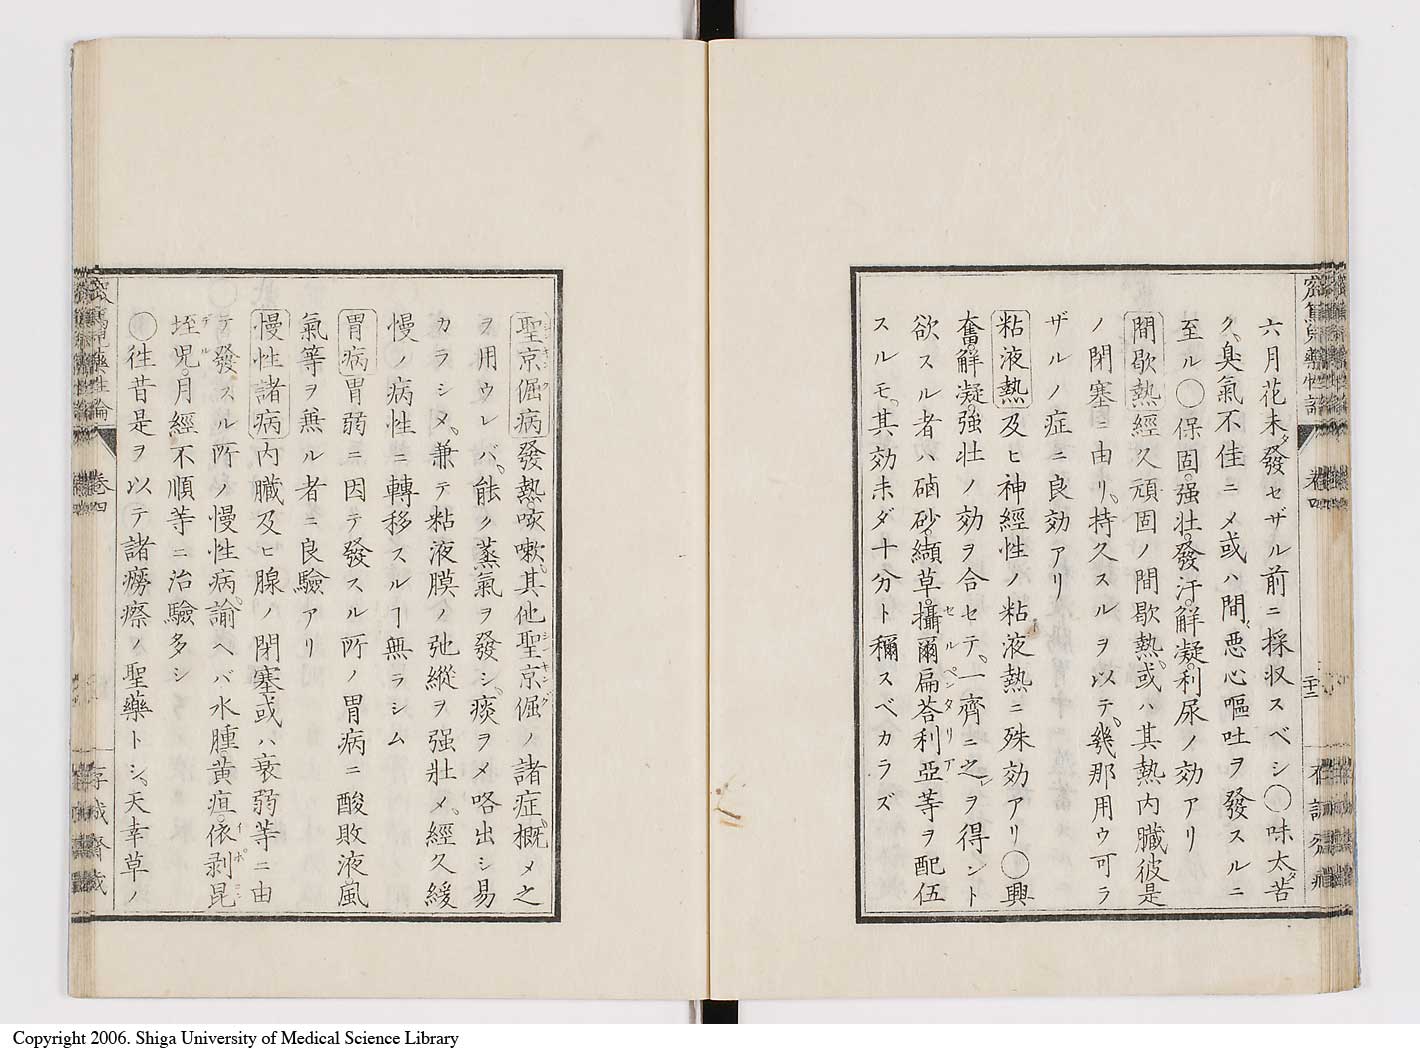 六月花未ダ發セザル前ニ採収スベシ〇味太ダ苦
ク、臭氣不佳ニメ或ハ間〻惡心嘔吐ヲ發スルニ
至ル〇保固。强壮。發汗。解凝。利尿ノ効アリ
間歇熱經久頑固ノ間歇熱、或ハ其熱内臓彼是
ノ閉塞ニ由リ、持久スルヲ以テ、幾那用ウ可ラ
ザルノ症ニ良効アリ
粘液熱及ヒ神經性ノ粘液熱ニ殊効アリ〇興
奮。解凝。强壮ノ効ヲ合セテ、一齊ニ之レヲ得ント
欲スル者ハ硇砂。纈草。攝爾扁荅利亞等ヲ配伍
セルペンタリア
スルモ、其効未ダ十分ト稱スベカラズ
卷四
二十二
聖京倔病發熱。咳嗽。其他聖京倔ノ諸症、概メ之
シンキング
ヲ用ウレバ、能ク蒸氣ヲ發シ、痰ヲメ咯出シ易
カラシメ、兼テ粘液膜ノ弛縱ヲ强壮メ、經久緩
慢ノ病性ニ轉移スルヿ無ラシム
胃病胃弱ニ因テ發スル所ノ胃病ニ酸敗液風
氣等ヲ兼ル者ニ良驗アリ
慢性諸病内臓及ヒ腺ノ閉塞或ハ衰弱等ニ由
テ發スル所ノ慢性病。諭ヘバ水腫。黄疸。依剥昆
イポコン
垤児。月經不順等ニ治驗多シ
デル
〇往昔是ヲ以テ諸癆瘵ノ聖藥トシ、天幸草ノ
藥性論
卷四